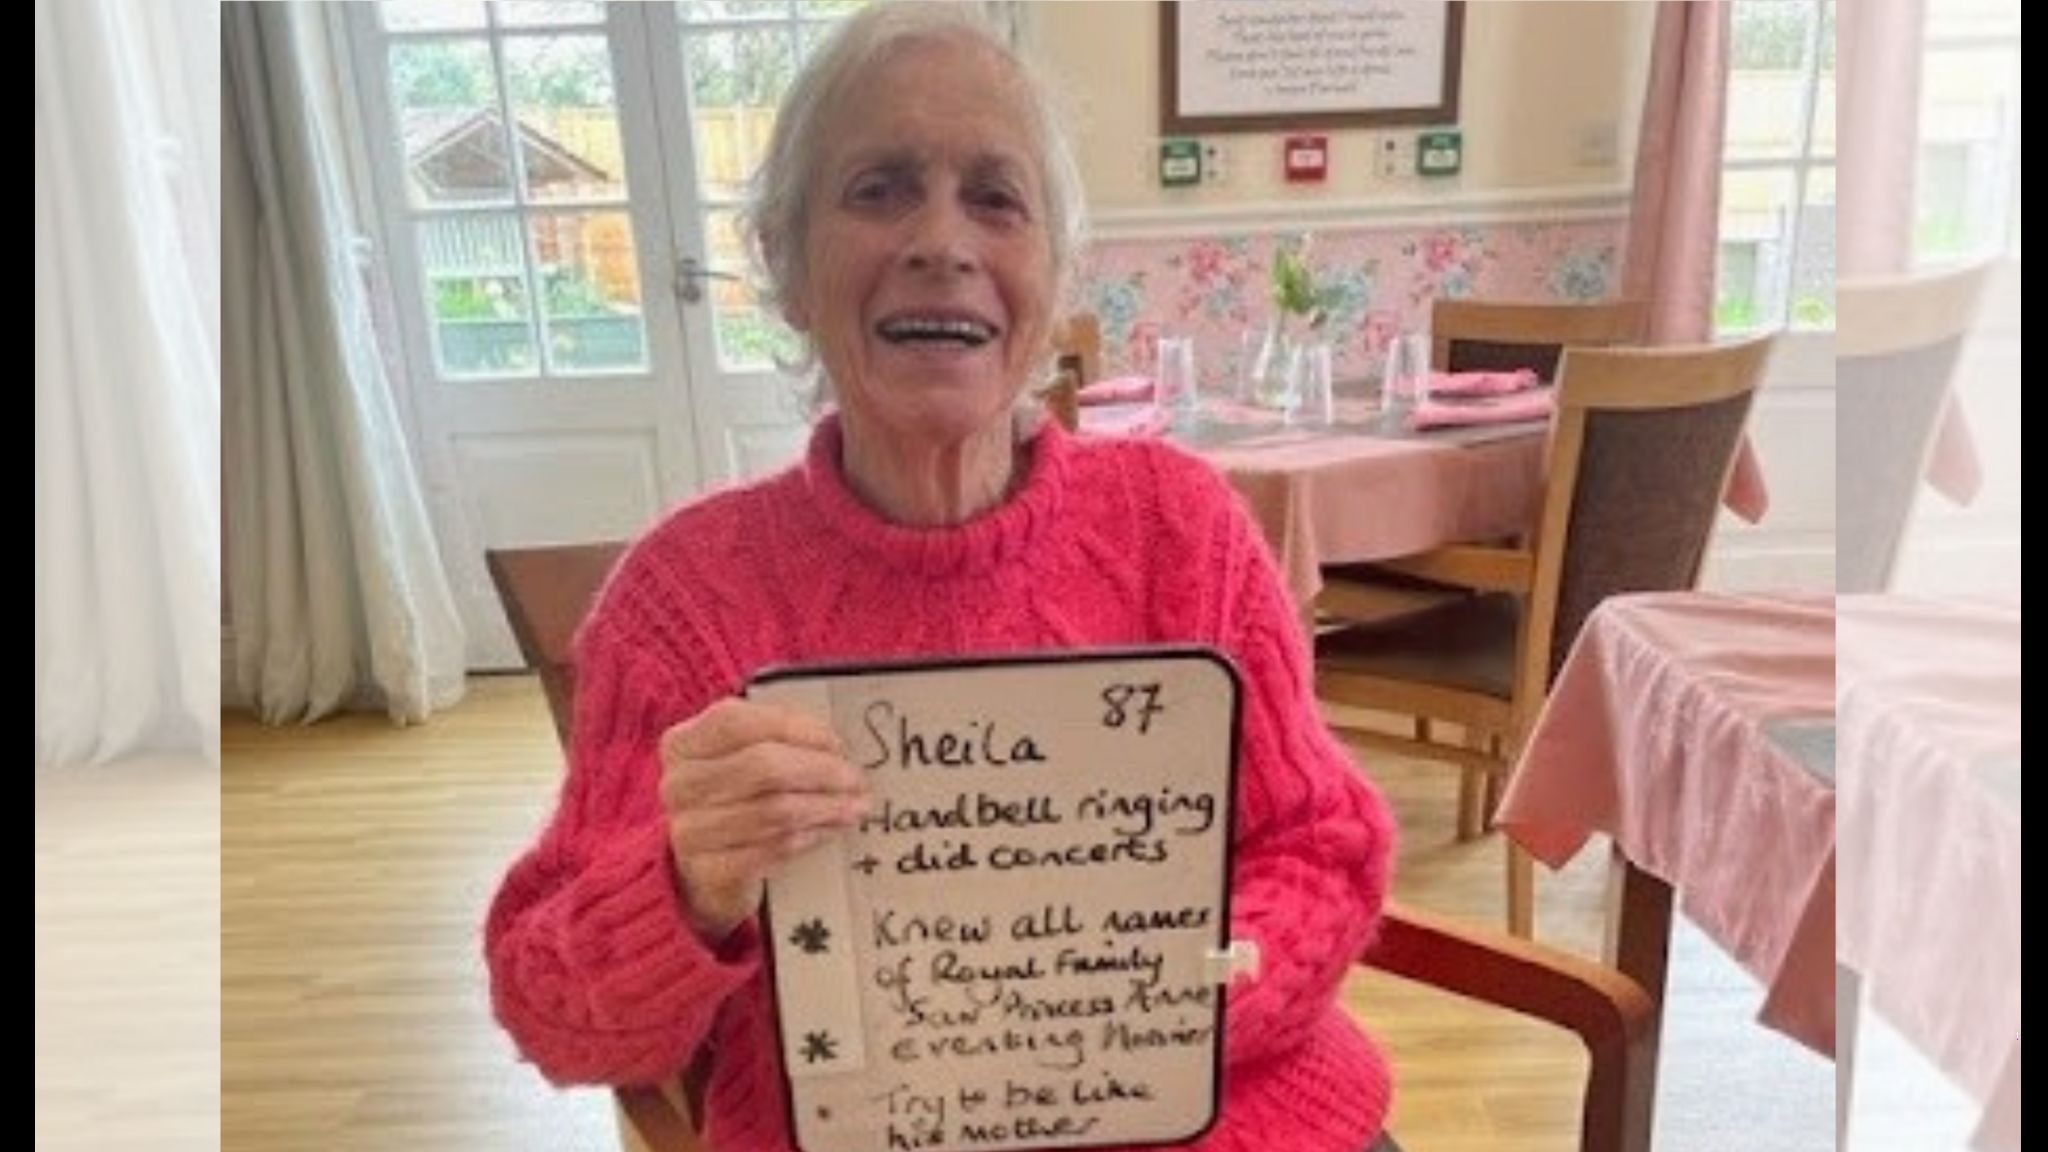 Sheila 87
Handbell ringing
+ did concerts
* Knew all names
of Royal Family
Saw Princess Anne
* eventing
• Try to be like
his mother